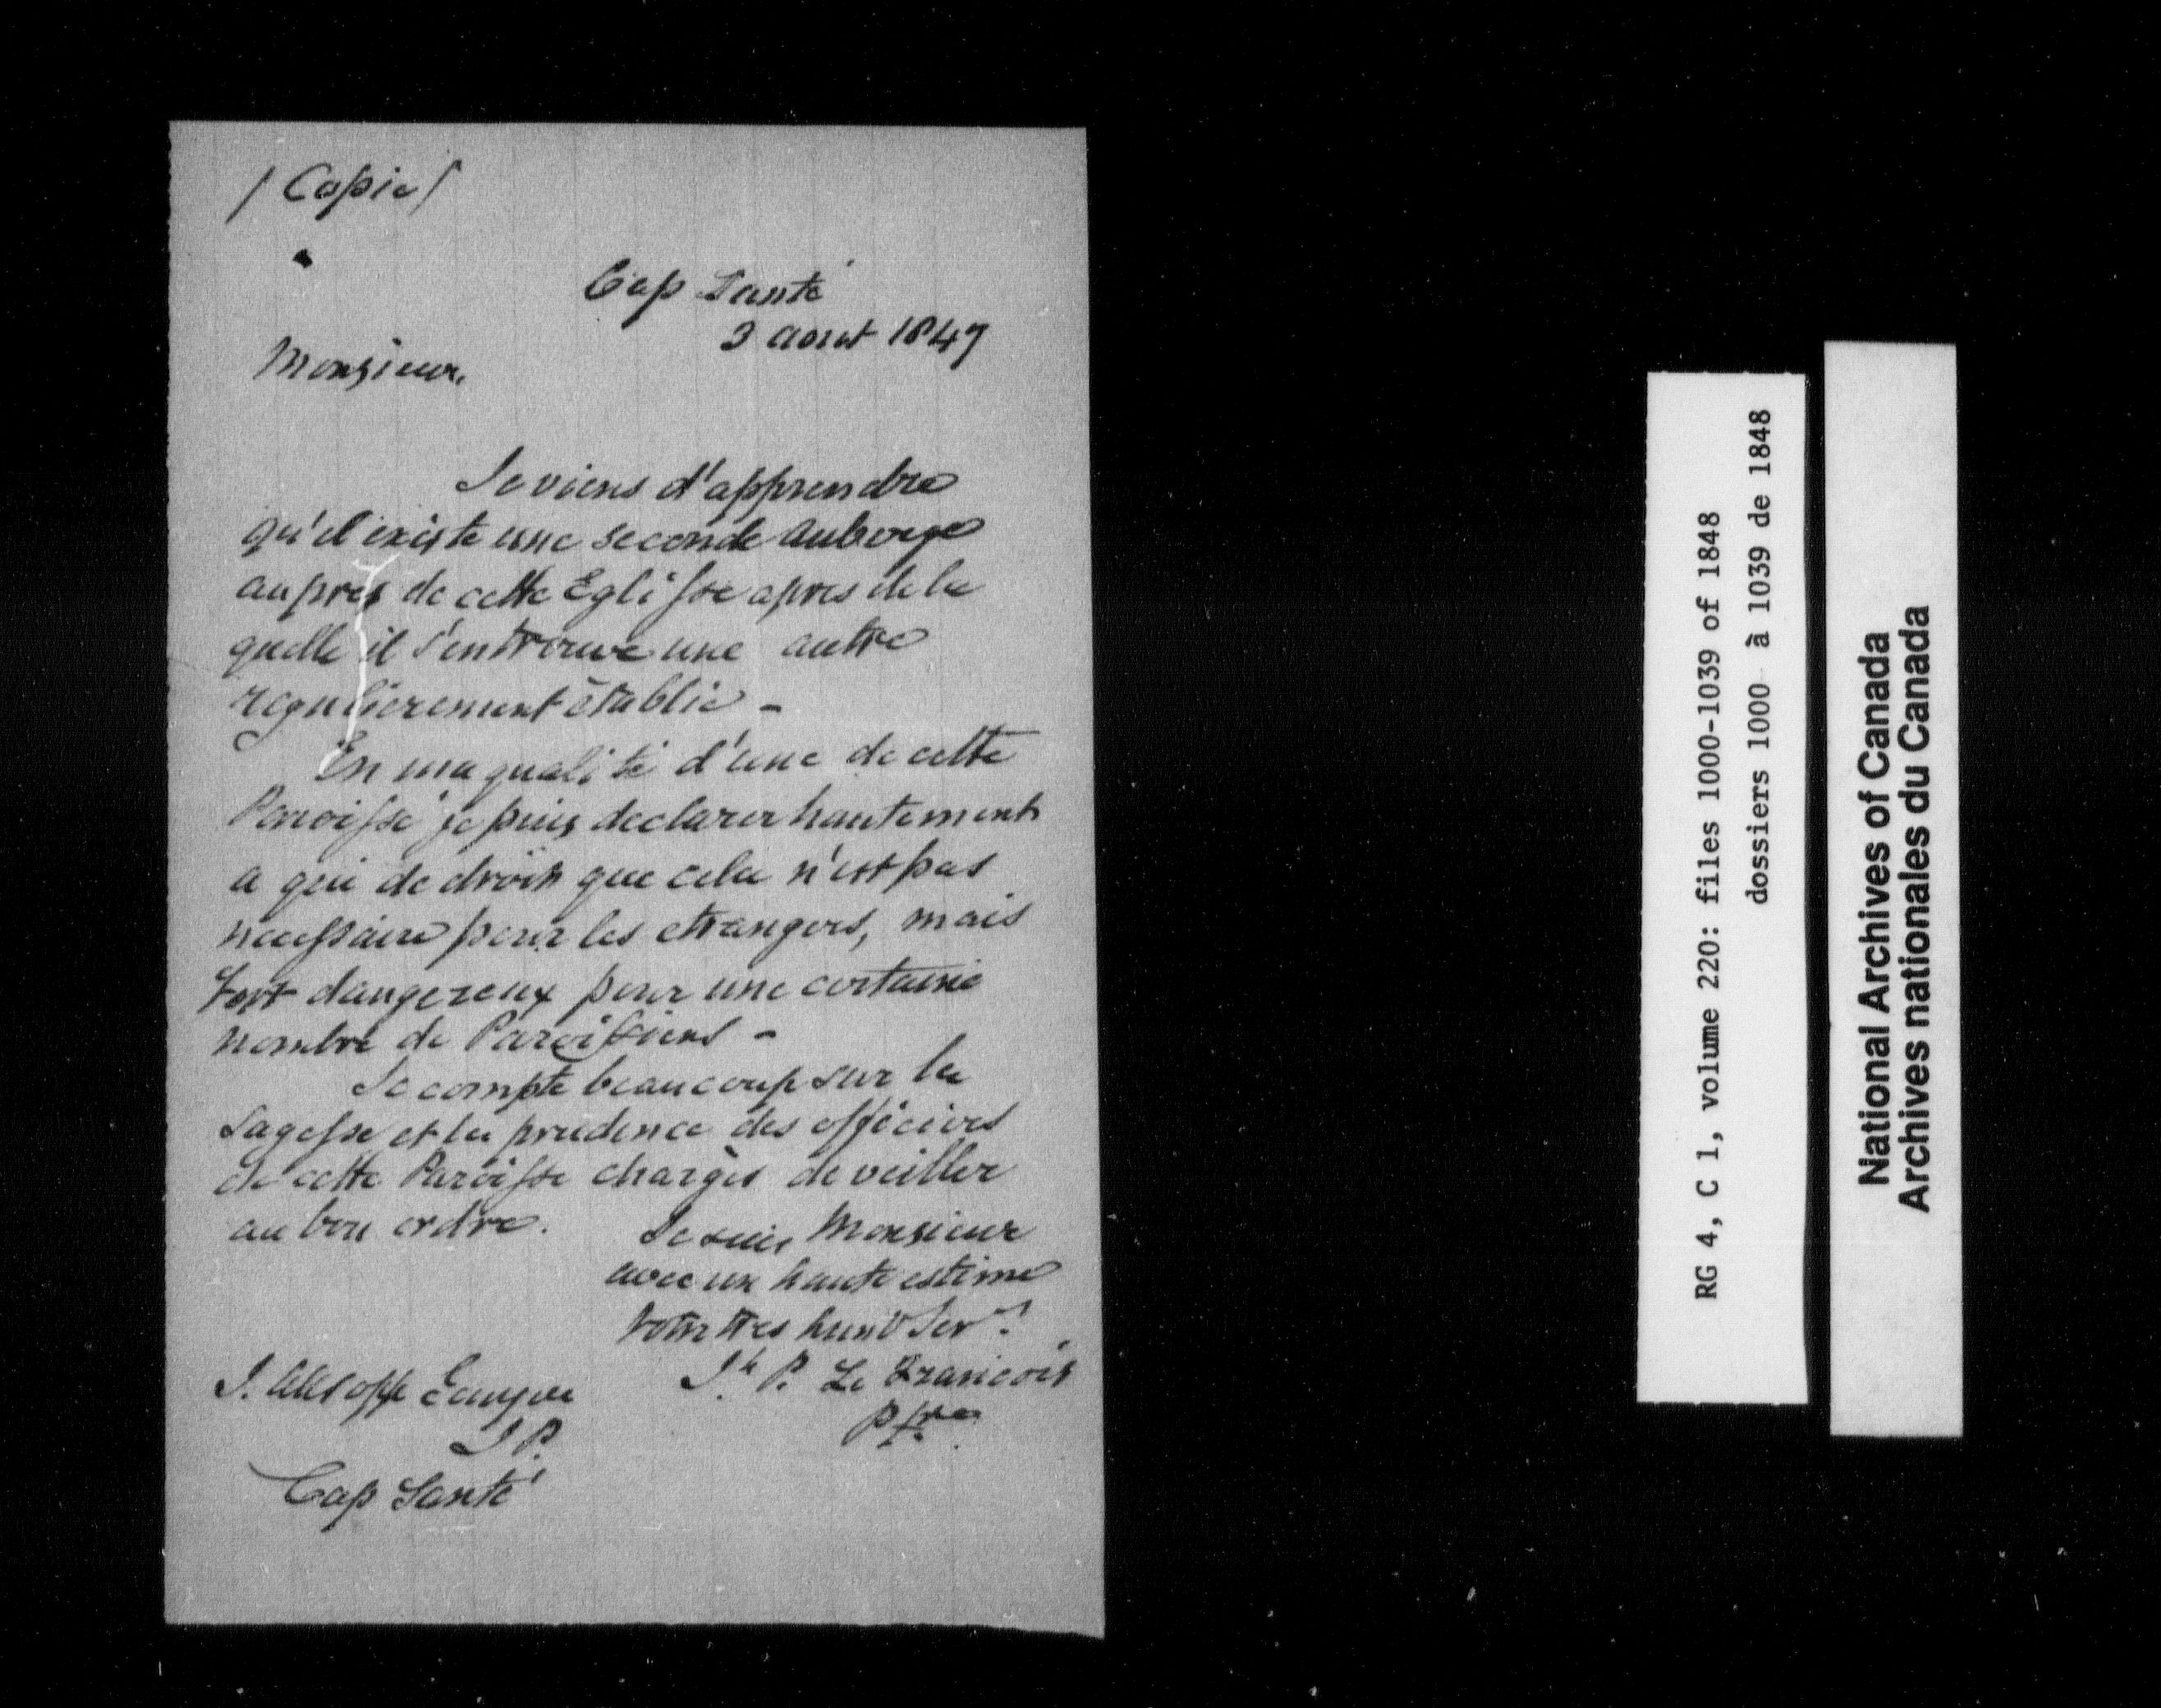 / Copie /
Cap Santé
3 aout 1847
Monsieur,
Je viens d'apprendre
qu'il existe une seconde auberge
auprès de cette Eglisse apres de la
quelle il s'en trouve une autre
regulierement établie -
En ma qualité d'une de cette
Paroisse je puis declarer hautement
a qui de droit que cela n'est pas
necessaire pour les etrangers, mais
fort dangereux pour une certaine
nombre de Paroissiens -
Je compte beaucoup sur la
Sagesse et la prudence des officiers
de cette Paroisse chargès de veiller
au bon ordre.
Je suis Monsieur
avec un haute estime
Votre tres humb Servt
Jh P. Le Francois
Ptre
J. Allsopp Ecuyer
J P.
Cap Santé
RG 4, C 1, volume 220: files 1000-1039 of 1848
dossiers 1000 à 1039 de 1848
National Archives of Canada
Archives nationales du Canada